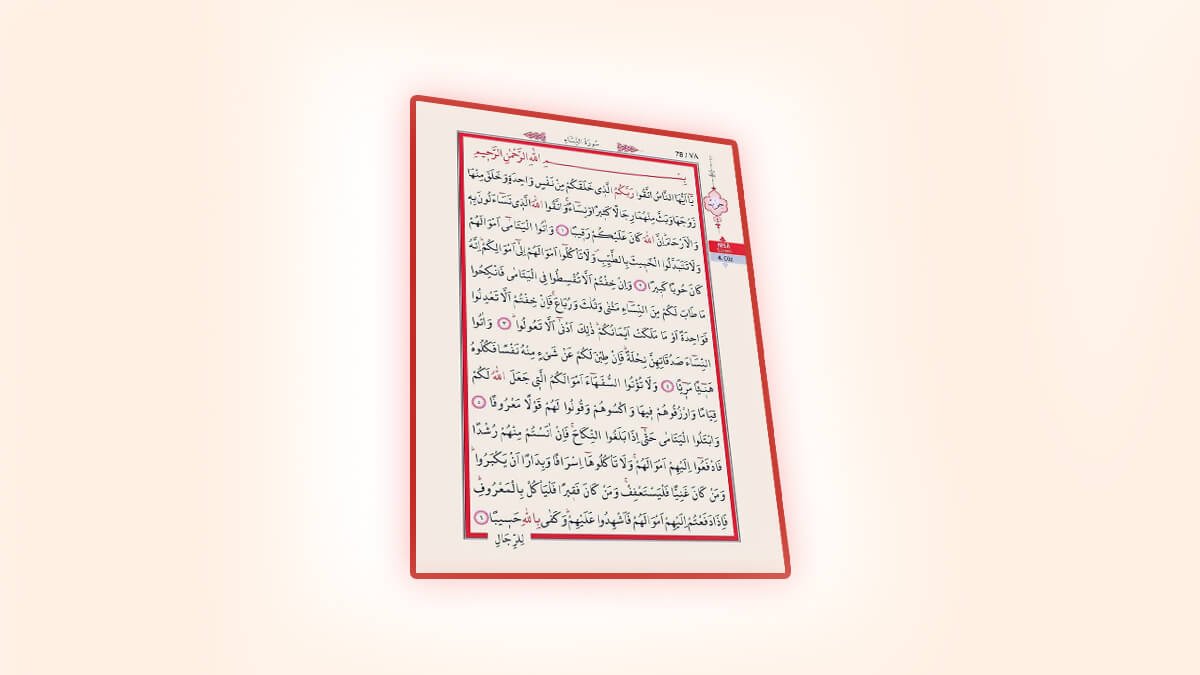 سُورَةُ النِّسَاءِ
78 / ٧٨
بِسْمِ اللّٰهِ الرَّحْمٰنِ الرَّحِيمِ
يَٓا اَيُّهَا النَّاسُ اتَّقُوا رَبَّكُمُ الَّذِي خَلَقَكُمْ مِنْ نَفْسٍ وَاحِدَةٍ وَخَلَقَ مِنْهَا
زَوْجَهَا وَبَثَّ مِنْهُمَا رِجَالًا كَثِيرًا وَنِسَٓاءًۚ وَاتَّقُوا اللّٰهَ الَّذِي تَسَٓاءَلُونَ بِهِ
وَالْاَرْحَامَۜ اِنَّ اللّٰهَ كَانَ عَلَيْكُمْ رَقِيبًا ﴿١﴾ وَاٰتُوا الْيَتَامٰٓى اَمْوَالَهُمْ
وَلَا تَتَبَدَّلُوا الْخَبِيثَ بِالطَّيِّبِۖ وَلَا تَأْكُلُٓوا اَمْوَالَهُمْ اِلٰٓى اَمْوَالِكُمْۜ اِنَّهُ
كَانَ حُوبًا كَبِيرًا ﴿٢﴾ وَاِنْ خِفْتُمْ اَلَّا تُقْسِطُوا فِي الْيَتَامٰى فَانْكِحُوا
مَا طَابَ لَكُمْ مِنَ النِّسَٓاءِ مَثْنٰى وَثُلٰثَ وَرُبَاعَۚ فَاِنْ خِفْتُمْ اَلَّا تَعْدِلُوا
فَوَاحِدَةً اَوْ مَا مَلَكَتْ اَيْمَانُكُمْۜ ذٰلِكَ اَدْنٰٓى اَلَّا تَعُولُواۜ ﴿٣﴾ وَاٰتُوا
النِّسَٓاءَ صَدُقَاتِهِنَّ نِحْلَةًۜ فَاِنْ طِبْنَ لَكُمْ عَنْ شَيْءٍ مِنْهُ نَفْسًا فَكُلُوهُ
هَنِٓيـًٔا مَرِٓيـًٔا ﴿٤﴾ وَلَا تُؤْتُوا السُّفَهَٓاءَ اَمْوَالَكُمُ الَّتِي جَعَلَ اللّٰهُ لَكُمْ
قِيَامًا وَارْزُقُوهُمْ فِيهَا وَاكْسُوهُمْ وَقُولُوا لَهُمْ قَوْلًا مَعْرُوفًا ﴿٥﴾
وَابْتَلُوا الْيَتَامٰى حَتّٰٓى اِذَا بَلَغُوا النِّكَاحَۚ فَاِنْ اٰنَسْتُمْ مِنْهُمْ رُشْدًا
فَادْفَعُٓوا اِلَيْهِمْ اَمْوَالَهُمْۚ وَلَا تَأْكُلُوهَٓا اِسْرَافًا وَبِدَارًا اَنْ يَكْبَرُواۜ
وَمَنْ كَانَ غَنِيًّا فَلْيَسْتَعْفِفْۚ وَمَنْ كَانَ فَقِيرًا فَلْيَأْكُلْ بِالْمَعْرُوفِۜ
فَاِذَا دَفَعْتُمْ اِلَيْهِمْ اَمْوَالَهُمْ فَاَشْهِدُوا عَلَيْهِمْۜ وَكَفٰى بِاللّٰهِ حَسِيبًا ﴿٦﴾
لِلرِّجَالِ
NİSÂ
4. Cüz